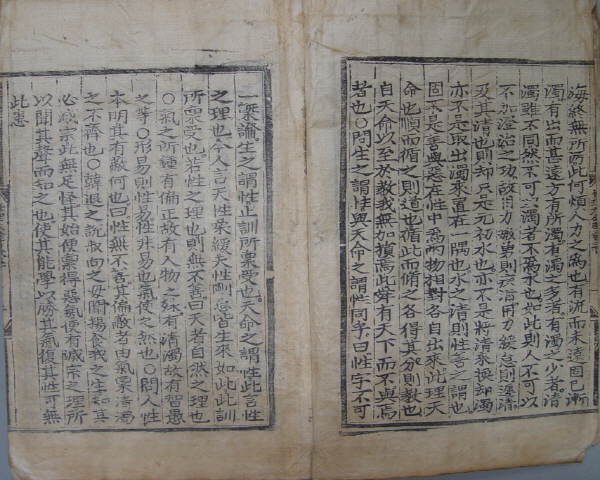 海終無所汚此何煩人力之爲也有流而未遠固已漸
濁有出而甚遠方有所濁有濁之多者有濁之少者清
濁雖不同然不可以濁者不爲水也如此則人不可以
不加澄治之功故用力敏勇則疾清用力緩怠則遲清
及其清也則却只是元初水也亦不是將清來換却濁
亦不是取出濁來置在一隅也水之清則性善之謂也
固不是善與惡在性中爲兩物相對各自出來此理天
命也順而循之則道也循此而脩之各得其分則敎也
自天命以至於敎我無加損焉此舜有天下而不與焉
者也○問生之謂性與天命之謂性同乎曰性字不可
一槩論生之謂性止訓所稟受也天命之謂性此言性
之理也今人言天性柔緩天性剛急皆生來如此此訓
所稟受也若性之理也則無不善曰天者自然之理也
○氣之所鍾有偏正故有人物之殊有淸濁故有智愚
之等○形易則性易性非易也氣使之然也○問人性
本明其有蔽何也曰性無不善其偏蔽者由氣稟淸濁
之不齊也○韓退之說叔向之母聞揚食我之生知其
必滅宗此無足怪其始便稟得惡氣便有滅宗之理所
以聞其聲而知之也使其能學以勝其氣復其性可無
此患